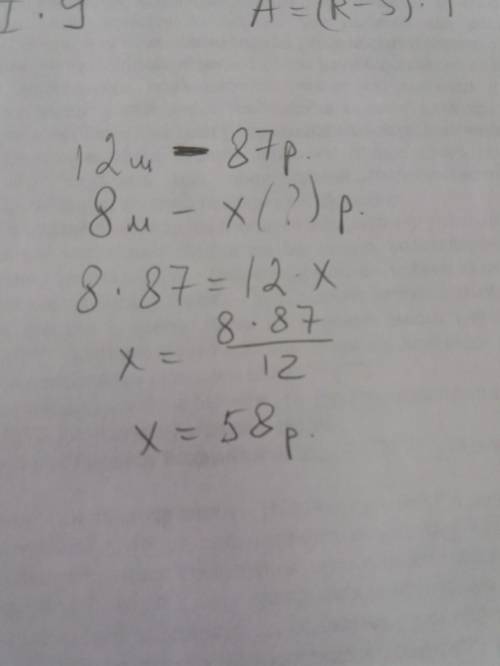 I · 9 A = (R - S) · T
12м - 87р.
8м - x(?) р.
8 · 87 = 12 · x
x = 8 · 87 / 12
x = 58р.